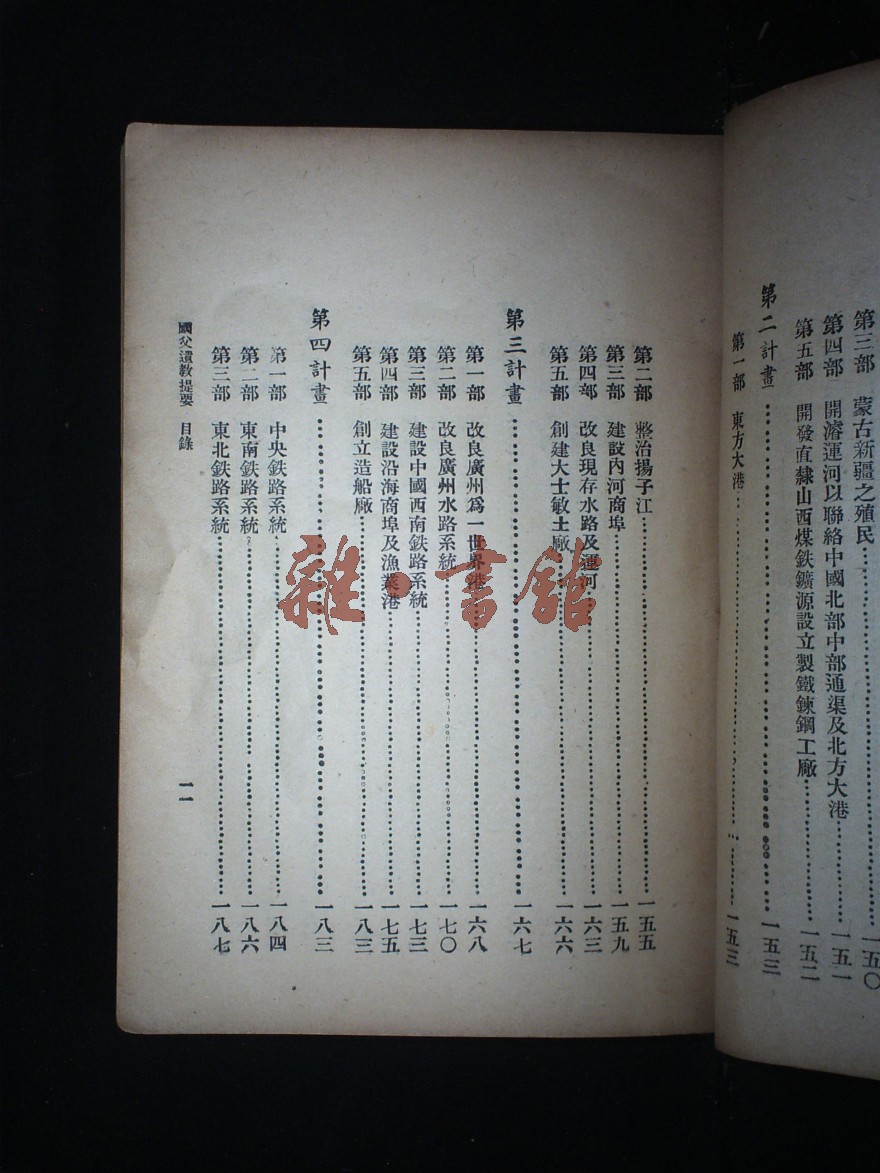 第三部 蒙古新疆之殖民……一五〇
第四部 開濬運河以聯絡中國北部中部通渠及北方大港……一五一
第五部 開發直隸山西煤鉄鑛源設立製鐵鍊鋼工廠……一五二
第二計畫……一五三
第一部 東方大港……一五三
第二部 整治揚子江……一五五
第三部 建設內河商埠……一五九
第四部 改良現存水路及運河……一六三
第五部 創建大士敏土廠……一六六
第三計畫……一六七
第一部 改良廣州爲一世界港……一六八
第二部 改良廣州水路系統……一七〇
第三部 建設中國西南鉄路系統……一七三
第四部 建設沿海商埠及漁業港……一七五
第五部 創立造船廠……一八三
第四計畫……一八三
第一部 中央鉄路系統……一八四
第二部 東南鉄路系統……一八六
第三部 東北鉄路系統……一八七
國父遺教提要 目錄
一一
雜·書館